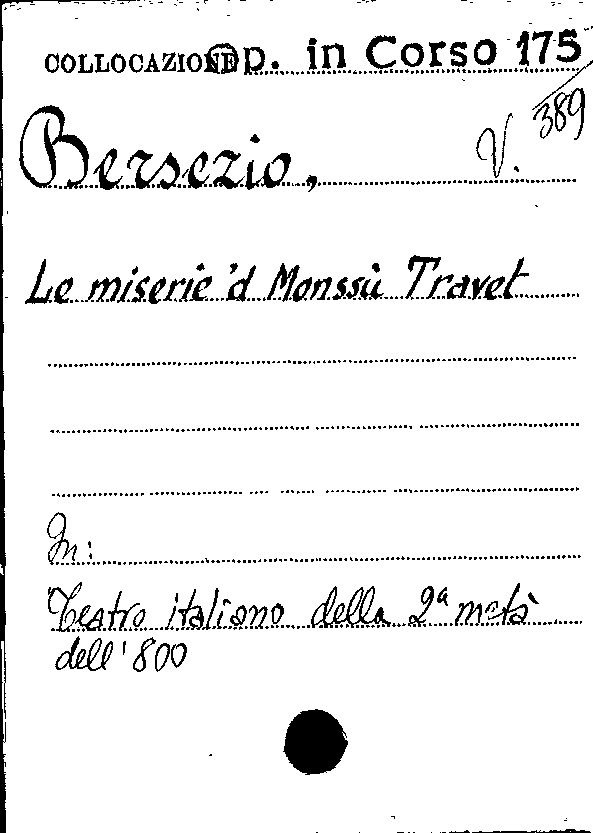 COLLOCAZIONE Op. in Corso 175
389
Bersezio, V.
Le miserie 'd Monssù Travet
In:
Teatro italiano della 2ª metà
dell'800